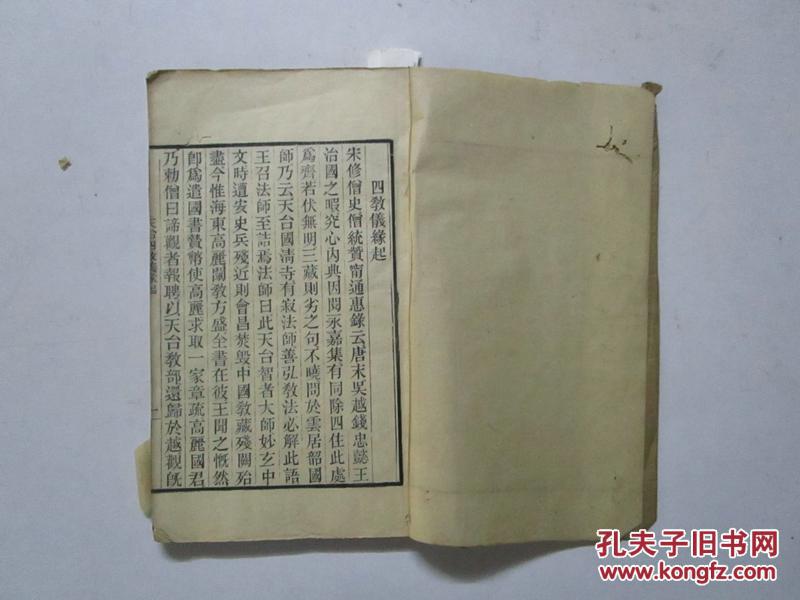 四教儀緣起
宋修僧史僧統贊甯通惠錄云唐末吳越錢忠懿王
治國之暇究心內典因閱永嘉集有同除四住此處
爲齊若伏無明三藏則劣之句不曉問於雲居韶國
師乃云天台國清寺有寂法師善弘教法必解此語
王召法師至詰焉法師曰此天台智者大師妙玄中
文時遭安史兵殘近則會昌焚毀中國教藏殘闕殆
盡今惟海東高麗闡教方盛全書在彼王聞之慨然
卽爲遣國書贄幣使高麗求取一家章疏高麗國君
乃勅僧曰諦觀者報聘以天台教部還歸於越觀旣
一
孔夫子旧书网
www.kongfz.com